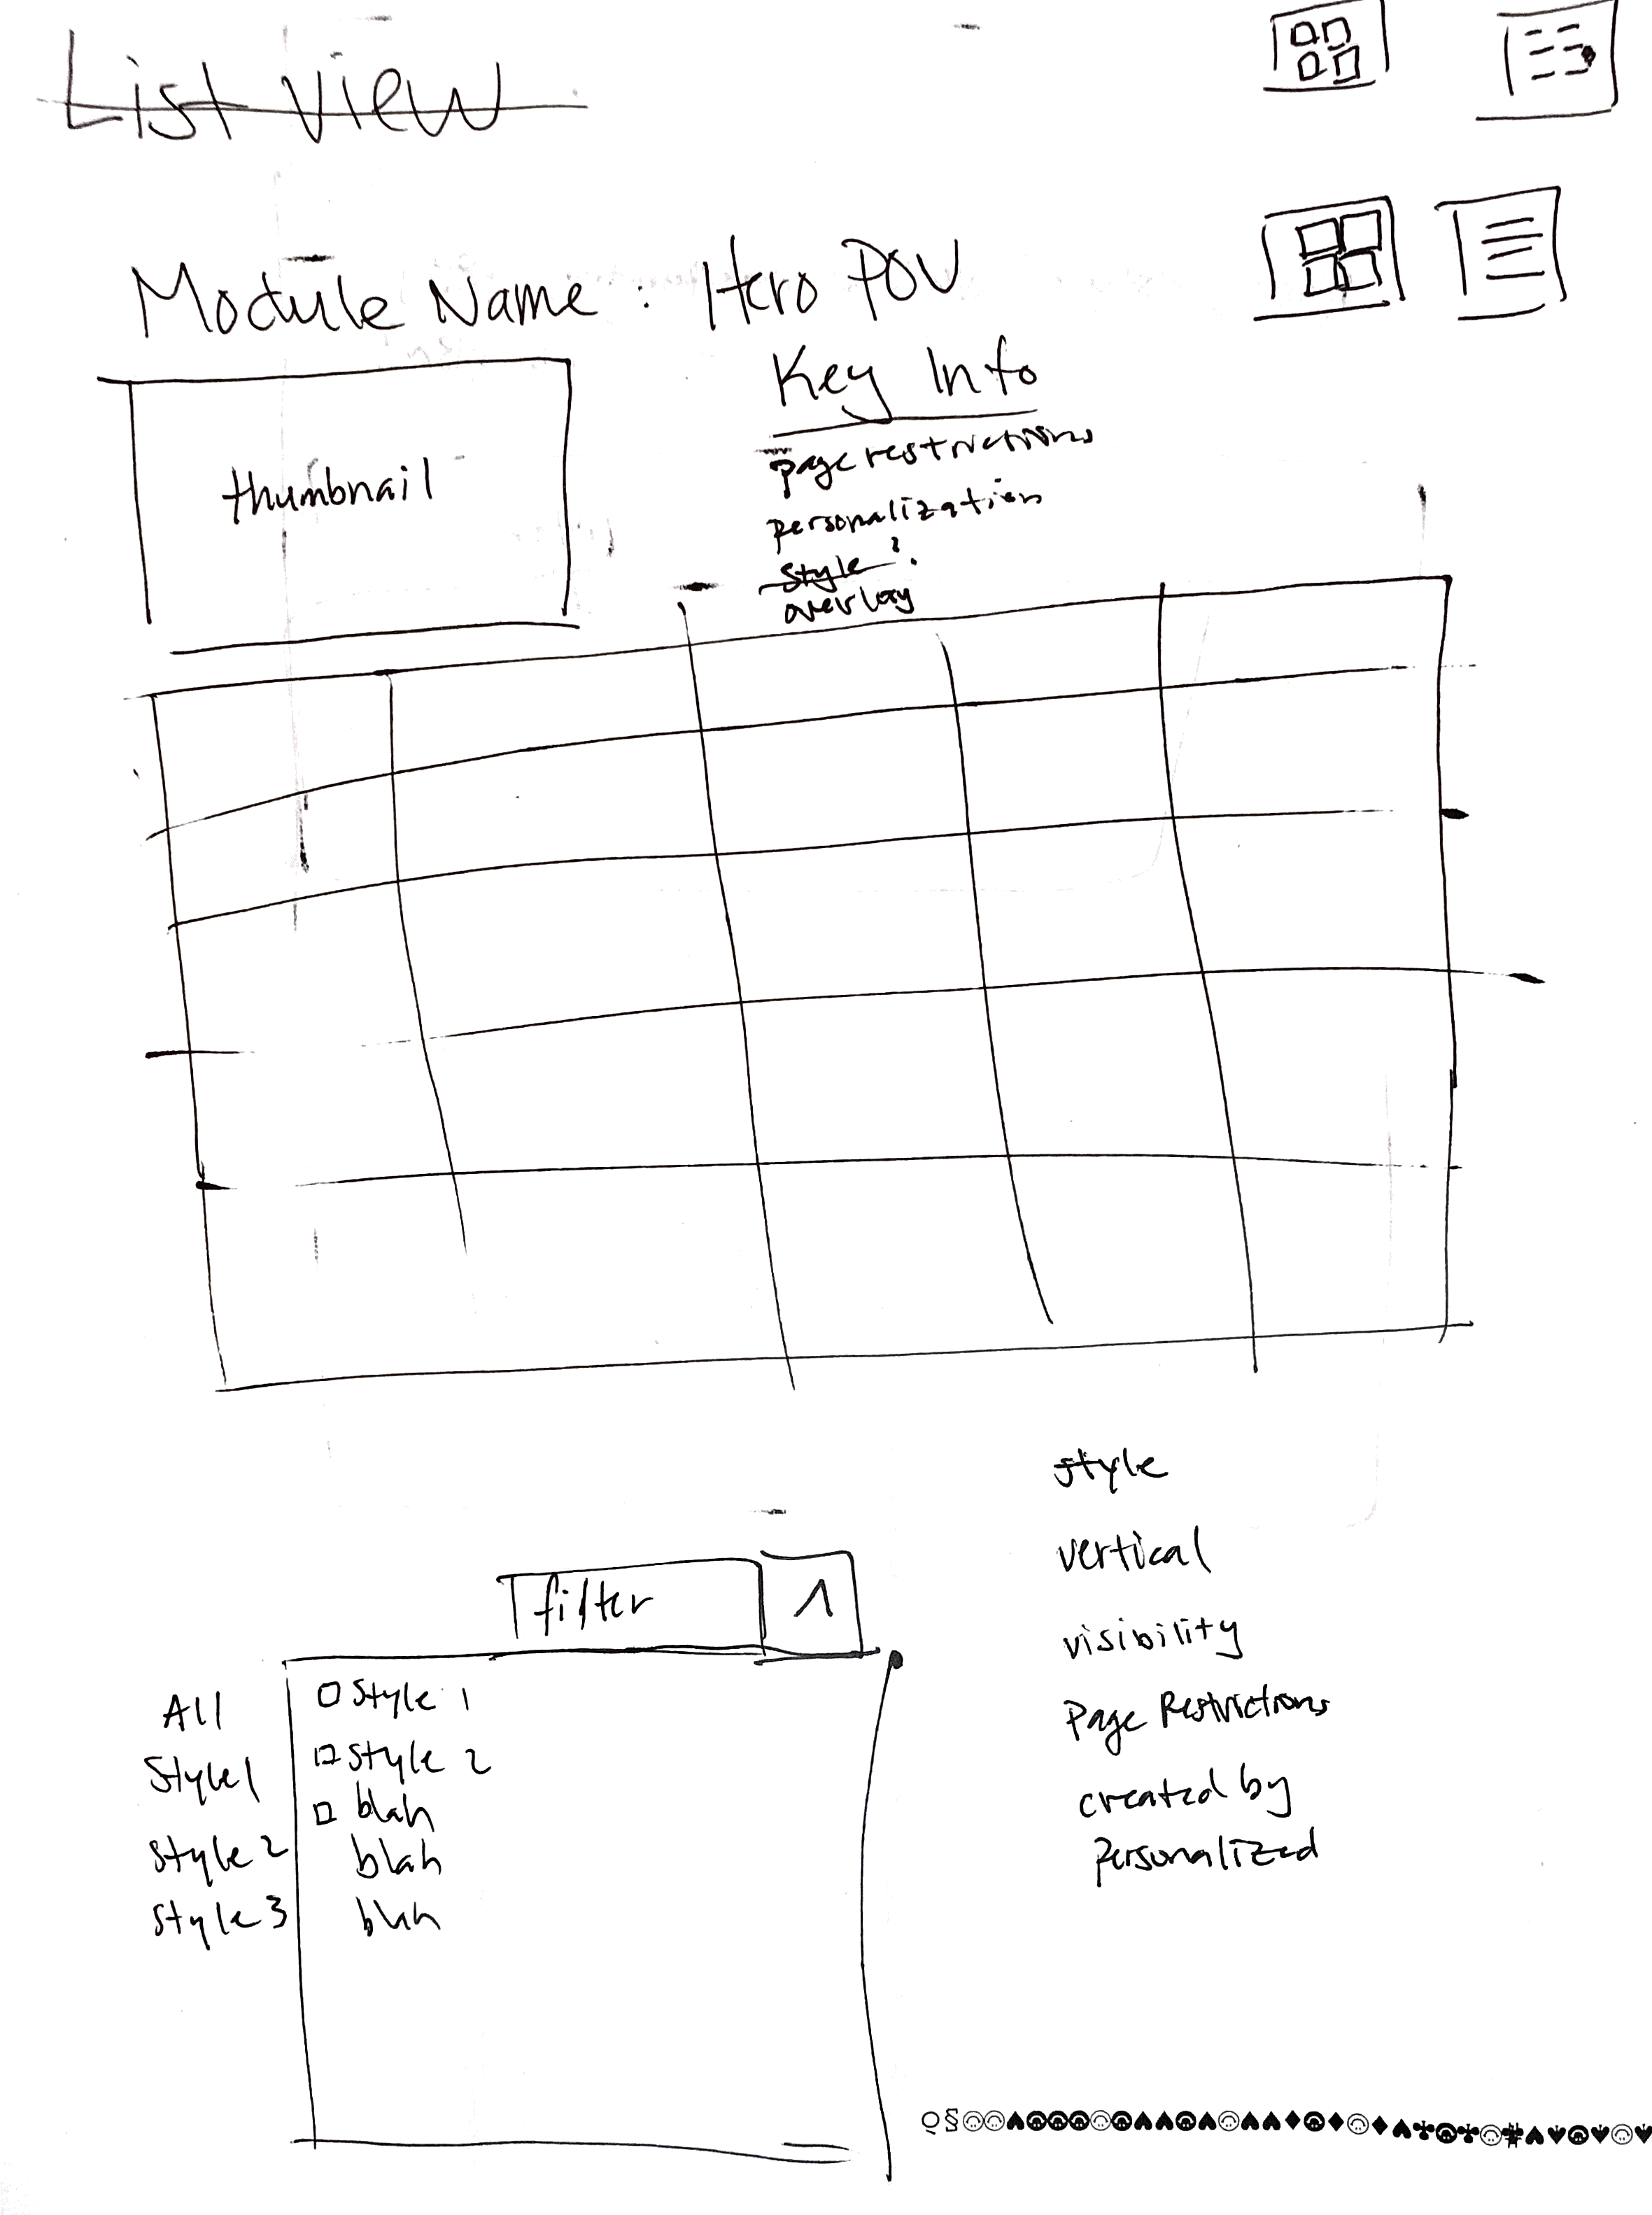 List View
Module Name : Hero POV
Key Info
page restrictions
personalization
style ?
overlay
style
vertical
visibility
Page Restrictions
created by
Personalized
filter
All
Style1
Style 2
Style 3
Style 1
Style 2
blah
blah
blah